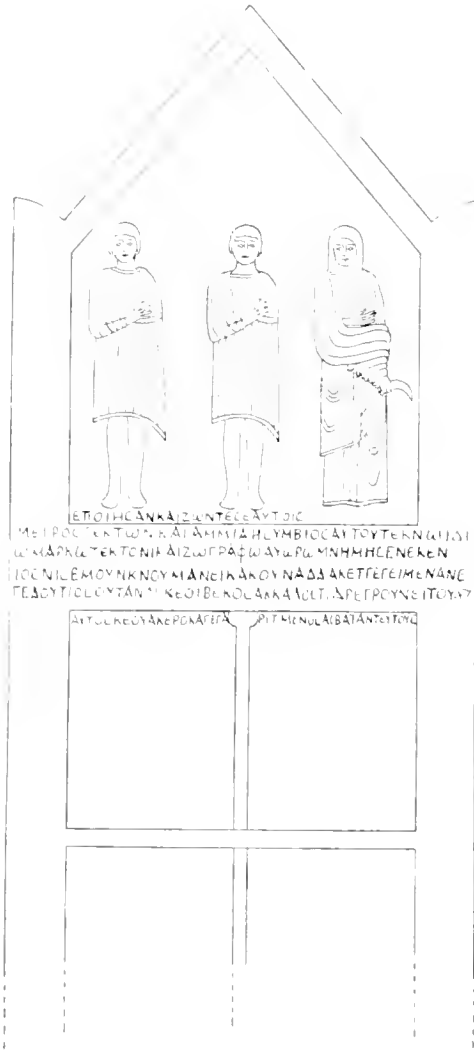 ΕΠΟΙΗϹΑΝΚΑΙΖΩΝΤΕϹΕΑΥΤΟΙϹ
ΜΕΙΡΟϹΤΕΚΤΩΝΚΑΙΑΜΜΙΑΗϹΥΜΒΙΟϹΑΥΤΟΥΤΕΚΝΩΙΔΙ
ΩΜΑΡΚΩΤΕΚΤΟΝΙΚΑΙΖΩΓΡΑΦΩΑΥΩΡΩΜΝΗΜΗϹΕΝΕΚΕΝ
ΙΟϹΝΙϹΕΜΟΥΝΚΝΟΥΜΑΝΕΙΚΑΚΟΥΝΑΔΔΑΚΕΤΓΕΓΕΙΜΕΝΑΝΕ
ΓΕΔΟΥΤΙΟϹΟΥΤΑΝ ΚΕΟΙΒΕΚΟϹΑΚΚΑΛΟϹΤ ΔΡΕΓΡΟΥΝΕΙΤΟΥ
ΑΥΤΟϹΚΕΟΥΑΚΕΡΟΚΑΓΕΓΑ ΡΙΤΜΕΝΟϹΑϹΒΑΤΑΝΤΕΥΤΟΥϹ